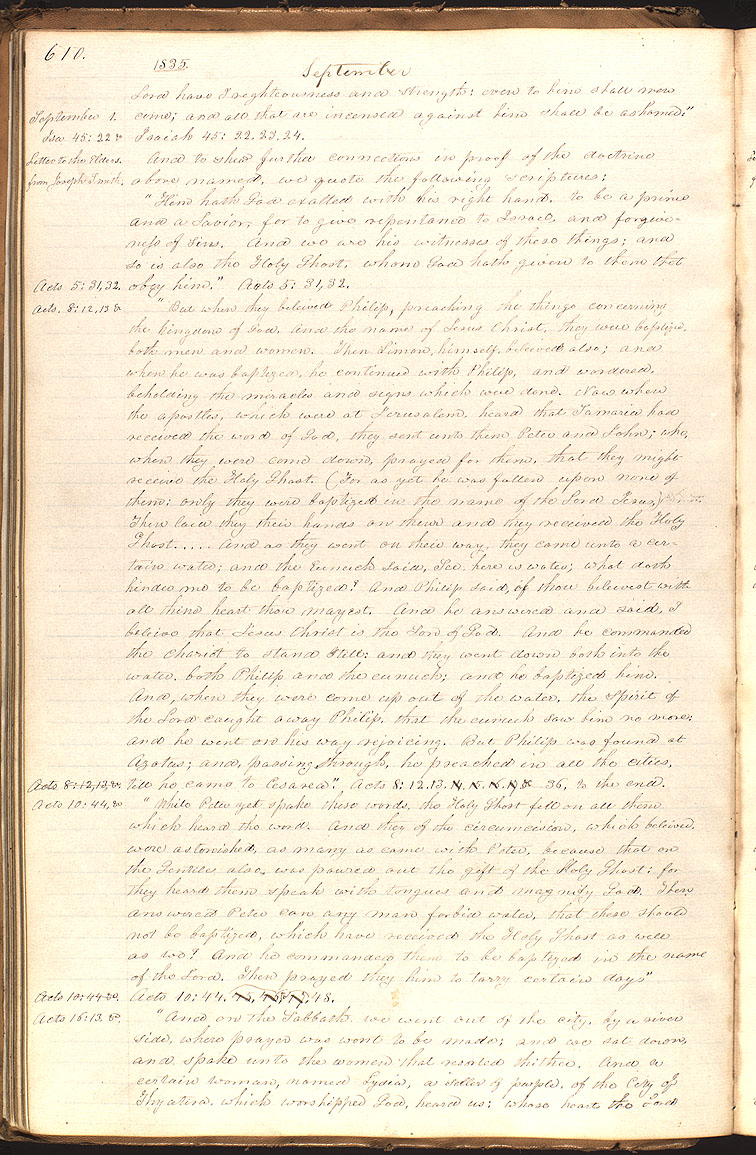 610.
1835.
September
Lord have I righteousness and strength: even to him shall men
September 1.
come; and all that are incensed against him shall be ashamed."
Isa 45: 22 &
Isaiah 45: 22. 23. 24.
Letter to the Elders.
And to shew further connections in proof of the doctrine
from Joseph Smith.
above named, we quote the following scriptures;
"Him hath God exalted with his right hand, to be a prince
and a Savior, for to give repentance to Israel, and forgive-
ness of Sins. And we are his witnesses of these things; and
so is also the Holy Ghost, whom God hath given to them that
Acts 5: 31, 32.
obey him." Acts 5: 31, 32.
Acts. 8: 12, 13 &
"But when they believed Philip, preaching the things concerning
the kingdom of God, and the name of Jesus Christ, they were baptized,
both men and women. Then Simon himself believed also; and
when he was baptized, he continued with Philip, and wondered,
beholding the miracles and signs which were done. Now when
the apostles, which were at Jerusalem, heard that Samaria had
received the word of God, they sent unto them Peter and John; who,
when they were come down, prayed for them, that they might
receive the Holy Ghost. (For as yet he was fallen upon none of
them: only they were baptized in the name of the Lord Jesus,)
Then laid they their hands on them and they received the Holy
Ghost..... And as they went on their way, they came unto a cer-
tain water; and the Eunuch said, See, here is water; what doth
hinder me to be baptized? And Philip said, if thou believest with
all thine heart thou mayest. And he answered and said, I
believe that Jesus Christ is the Son of God. And he commanded
the Chariot to stand still: and they went down both into the
water, both Philip and the eunuch; and he baptized him.
And, when they were come up out of the water, the Spirit of
the Lord caught away Philip, that the eunuch saw him no more;
and he went on his way rejoicing. But Philip was found at
Azotus; and, passing through, he preached in all the cities,
Acts 8: 12, 13, &.
till he came to Cesarea." Acts 8: 12. 13. 14. 15. 16. 17. & 36, to the end.
Acts 10: 44, &
"While Peter yet spake these words, the Holy Ghost fell on all them
which heard the word. And they of the circumcision, which believed,
were astonished, as many as came with Peter, because that on
the Gentiles also, was poured out the gift of the Holy Ghost; for
they heard them speak with tongues and magnify God. Then
answered Peter can any man forbid water, that these should
not be baptized, which have received the Holy Ghost as well
as we? And he commanded them to be baptized in the name
of the Lord. Then prayed they him to tarry certain days"
Acts 10: 44 &.
Acts 10: 44. 45, 46, 47, 48.
Acts 16: 13. &.
"And on the Sabbath, we went out of the city, by a river
side, where prayer was wont to be made; and we sat down,
and spake unto the women that resorted thither. And a
certain woman, named Lydia, a seller of purple, of the City of
Thyatira, which worshipped God, heard us; whose heart the Lord